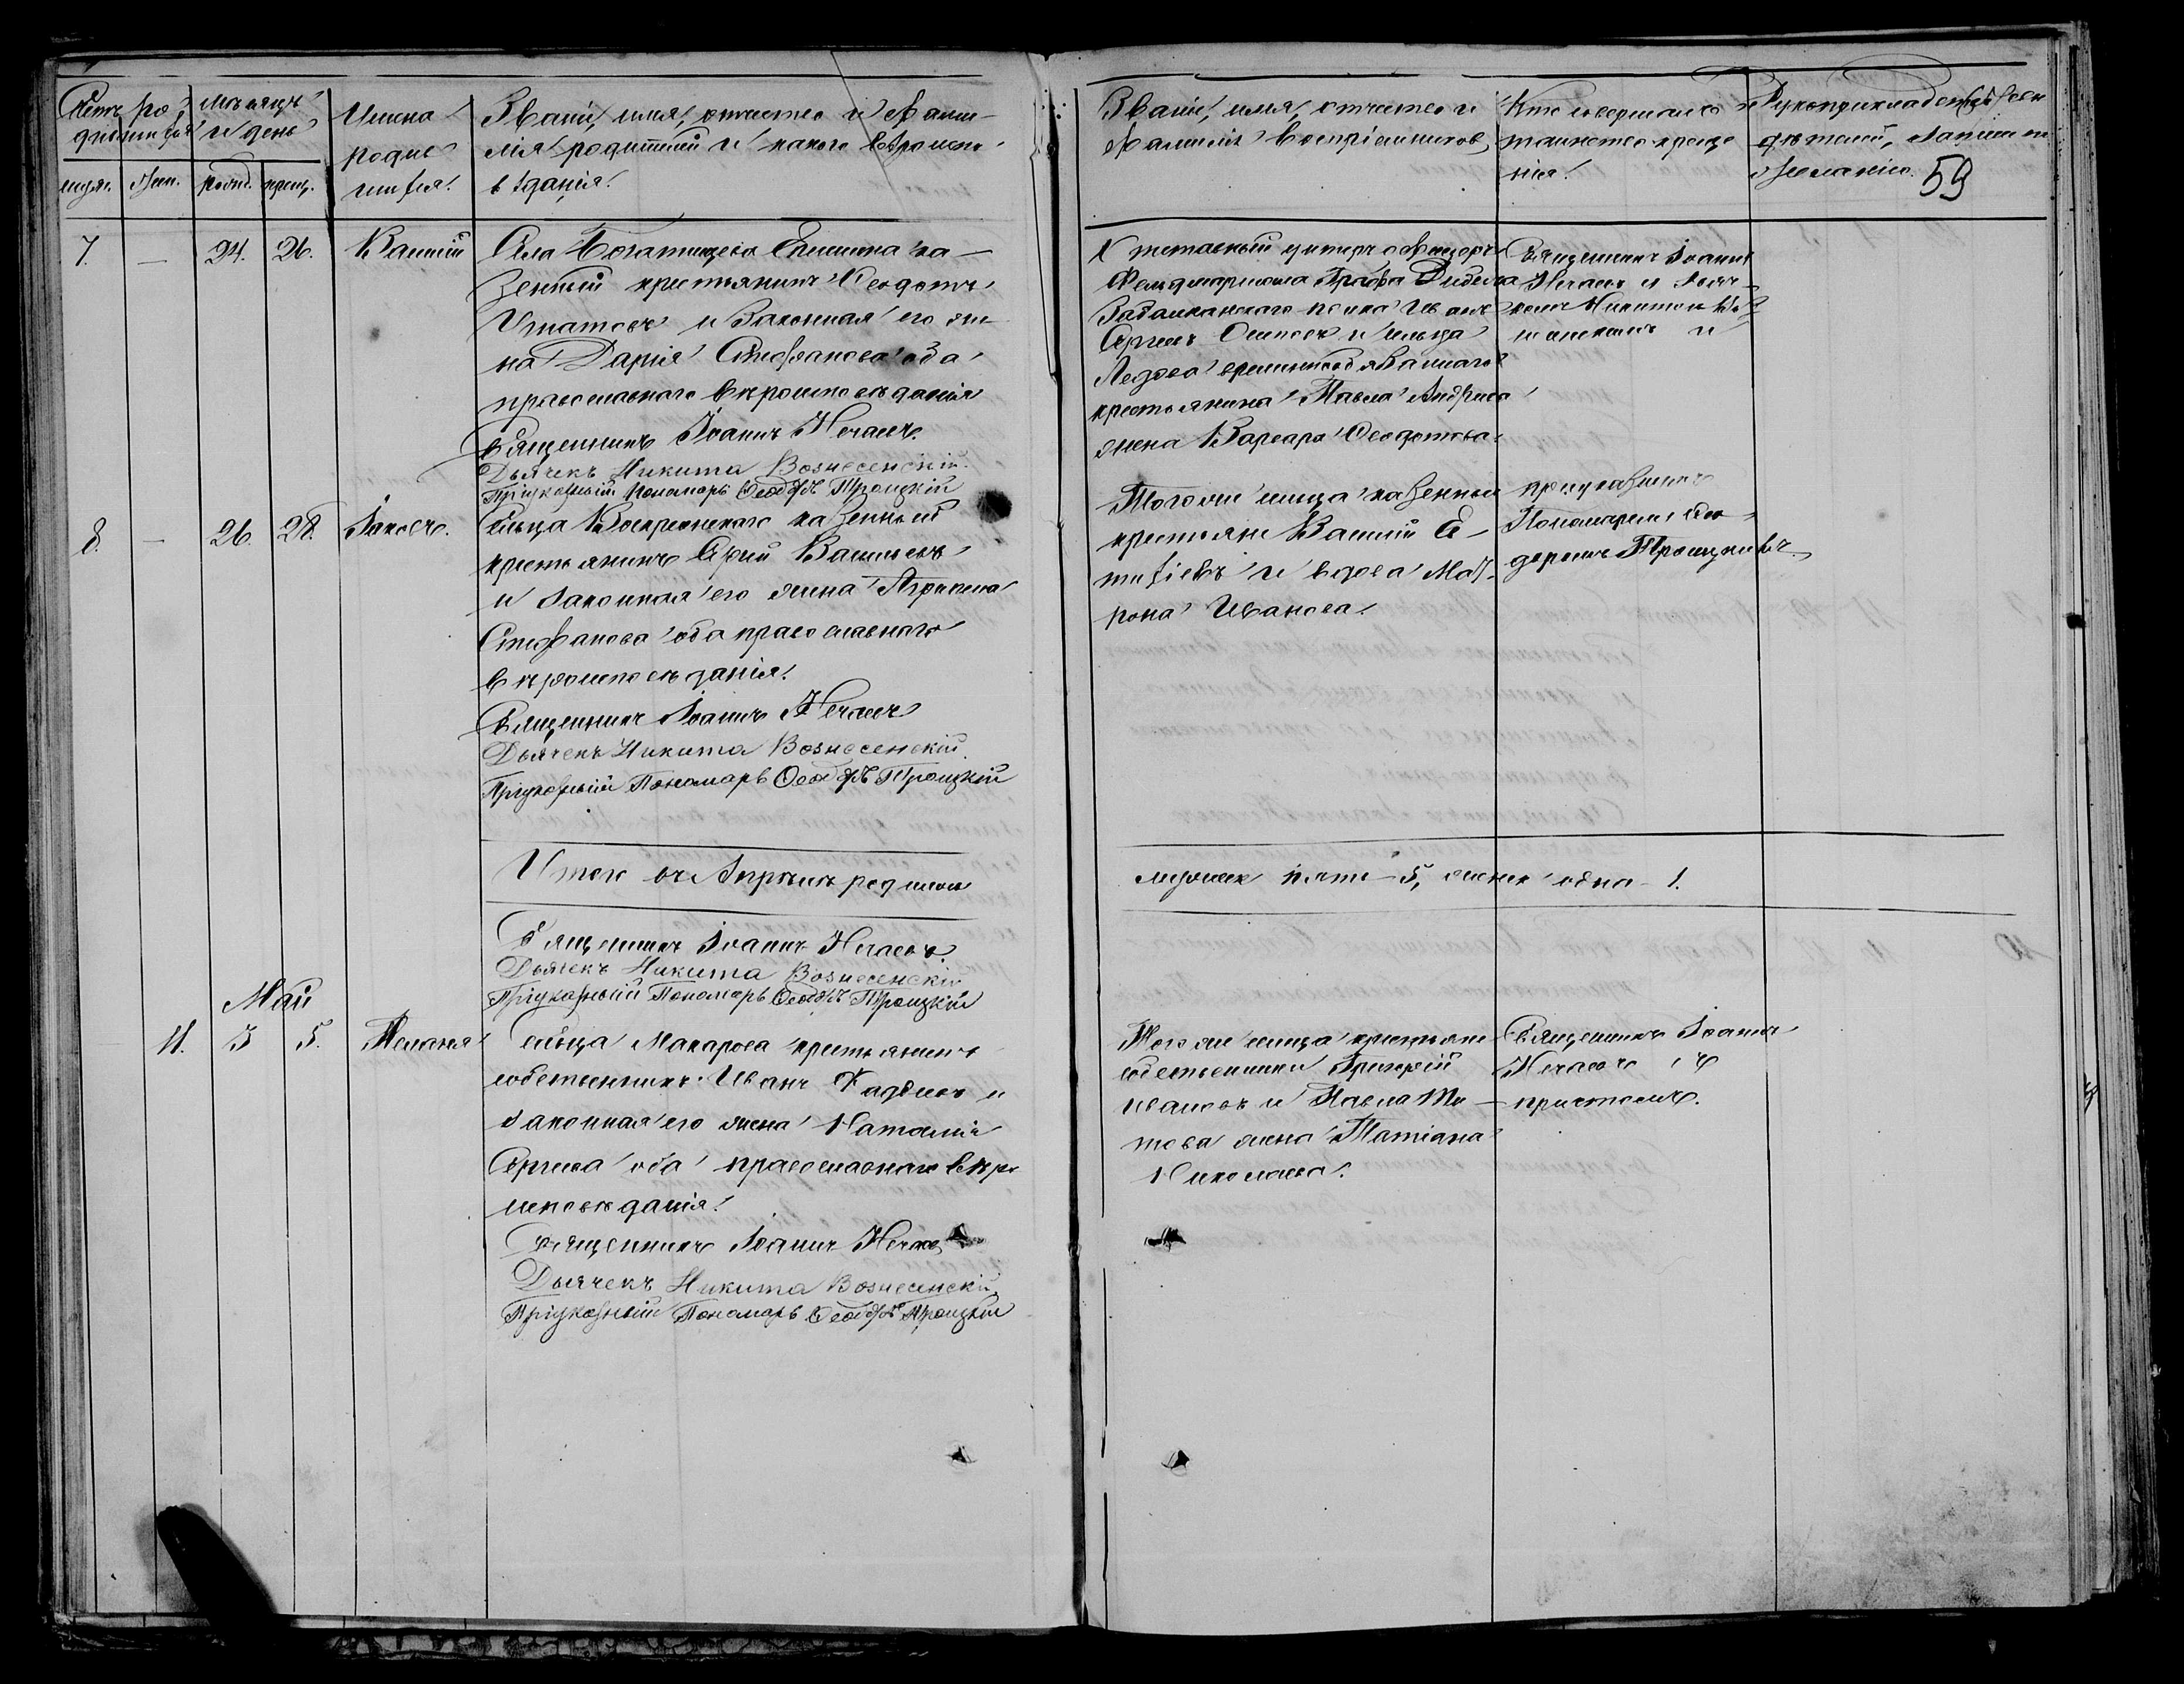 Счетъ ро-
дившихся
мужс. жен.
Мѣсяцъ
и день
рожд. крещ.
Имена
родив-
шихся.
Званіе, имя, отчество и фами-
лія родителей и какого вѣроиспо-
вѣданія.
Званіе, имя, отчество и
фамилія воспріемниковъ
Кто совершалъ
таинство креще
нія.
Рукоприкладство свѣ
дѣтелей, записи по
желанію.
59
7. — 24. 26. Василій
Села Богатищева Епишина ка-
зенный крестьянинъ Ѳеодотъ
Игнатовъ и законная его же-
на Дарія Стефанова оба
православнаго вѣроисповѣданія
Священникъ Іоаннъ Нечаевъ
Дьячекъ Никита Вознесенскій
Приуказный Пономарь Ѳеодоръ Троицкій
Отставный унтеръ офицеръ
Фельдмаршала Графа Дибича
Забалканскаго полка Иванъ
Сергѣевъ Осиповъ и сельца
Ледова временнообязаннаго
крестьянина Павла Андреева
жена Варвара Ѳеодотова.
Священникъ Іоаннъ
Нечаевъ и дьяч-
комъ Никитою Воз-
несенскимъ и
приуказнымъ
Пономаремъ Ѳео-
доромъ Троицкимъ
8. — 26. 28. Іаковъ.
Сельца Воскресенскаго казенный
крестьянинъ Сергій Васильевъ
и законная его жена Агрипина
Стефанова оба православнаго
вѣроисповѣданія.
Священникъ Іоаннъ Нечаевъ
Дьячекъ Никита Вознесенскій
Приуказный Пономарь Ѳеодоръ Троицкій
Того же сельца казенный
крестьянинъ Василій Е-
и вдова Мат-
рона Иванова.
Итого въ Апрѣлѣ родилось
мужеск. пять - 5, женск. одна - 1.
Священникъ Іоаннъ Нечаевъ.
Дьячекъ Никита Вознесенскій
Приуказный Пономарь Ѳеодоръ Троицкій
Май
11. 3 5. Пелагія
Сельца Макарова крестьянинъ
собственникъ Иванъ Фадѣевъ и
законная его жена Наталія
Сергѣева оба православнаго вѣро
исповѣданія.
Священникъ Іоаннъ Нечаевъ
Дьячекъ Никита Вознесенскій
Приуказный Пономарь Ѳеодоръ Троицкій
Того же сельца крестьяне
собственники Григорій
Ивановъ и Павла Ти-
това жена Татіана
Николаева.
Священникъ Іоаннъ
Нечаевъ съ
причтомъ.